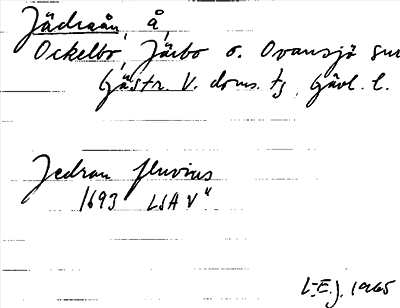 Jädraån, å,
Ockelbo, Järbo o. Ovansjö sn
Gästr. V. doms. tg, Gävl. l.
Jedran fluvius
1693 LSA V"
L-E.J. 1965